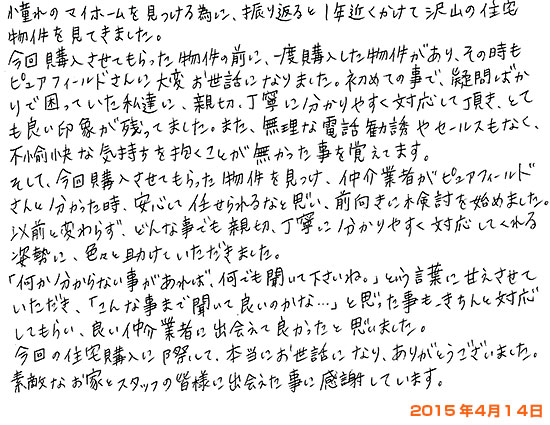 憧れのマイホームを見つける為に、振り返ると1年近くかけて沢山の住宅
物件を見てきました。
今回購入させてもらった物件の前に、一度購入した物件があり、その時も
ピュアフィールドさんに大変お世話になりました。初めての事で、疑問ばか
りで困っていた私達に、親切、丁寧に分かりやすく対応して頂き、とて
も良い印象が残ってました。また、無理な電話勧誘やセールスもなく、
不愉快な気持ちを抱くことが無かった事を覚えてます。
そして、今回購入させてもらった物件を見つけ、仲介業者がピュアフィールド
さんと分かった時、安心して任せられるなと思い、前向きに検討を始めました。
以前と変わらず、どんな事でも親切、丁寧に分かりやすく対応してくれる
姿勢に、色々と助けていただきました。
「何か分からない事があれば、何でも聞いて下さいね。」という言葉に甘えさせて
いただき、「こんな事まで聞いて良いのかな…」と思った事も、きちんと対応
してもらい、良い仲介業者に出会えて良かったと思いました。
今回の住宅購入に際して、本当にお世話になり、ありがとうございました。
素敵なお家とスタッフの皆様に出会えた事に感謝しています。
2015年4月14日